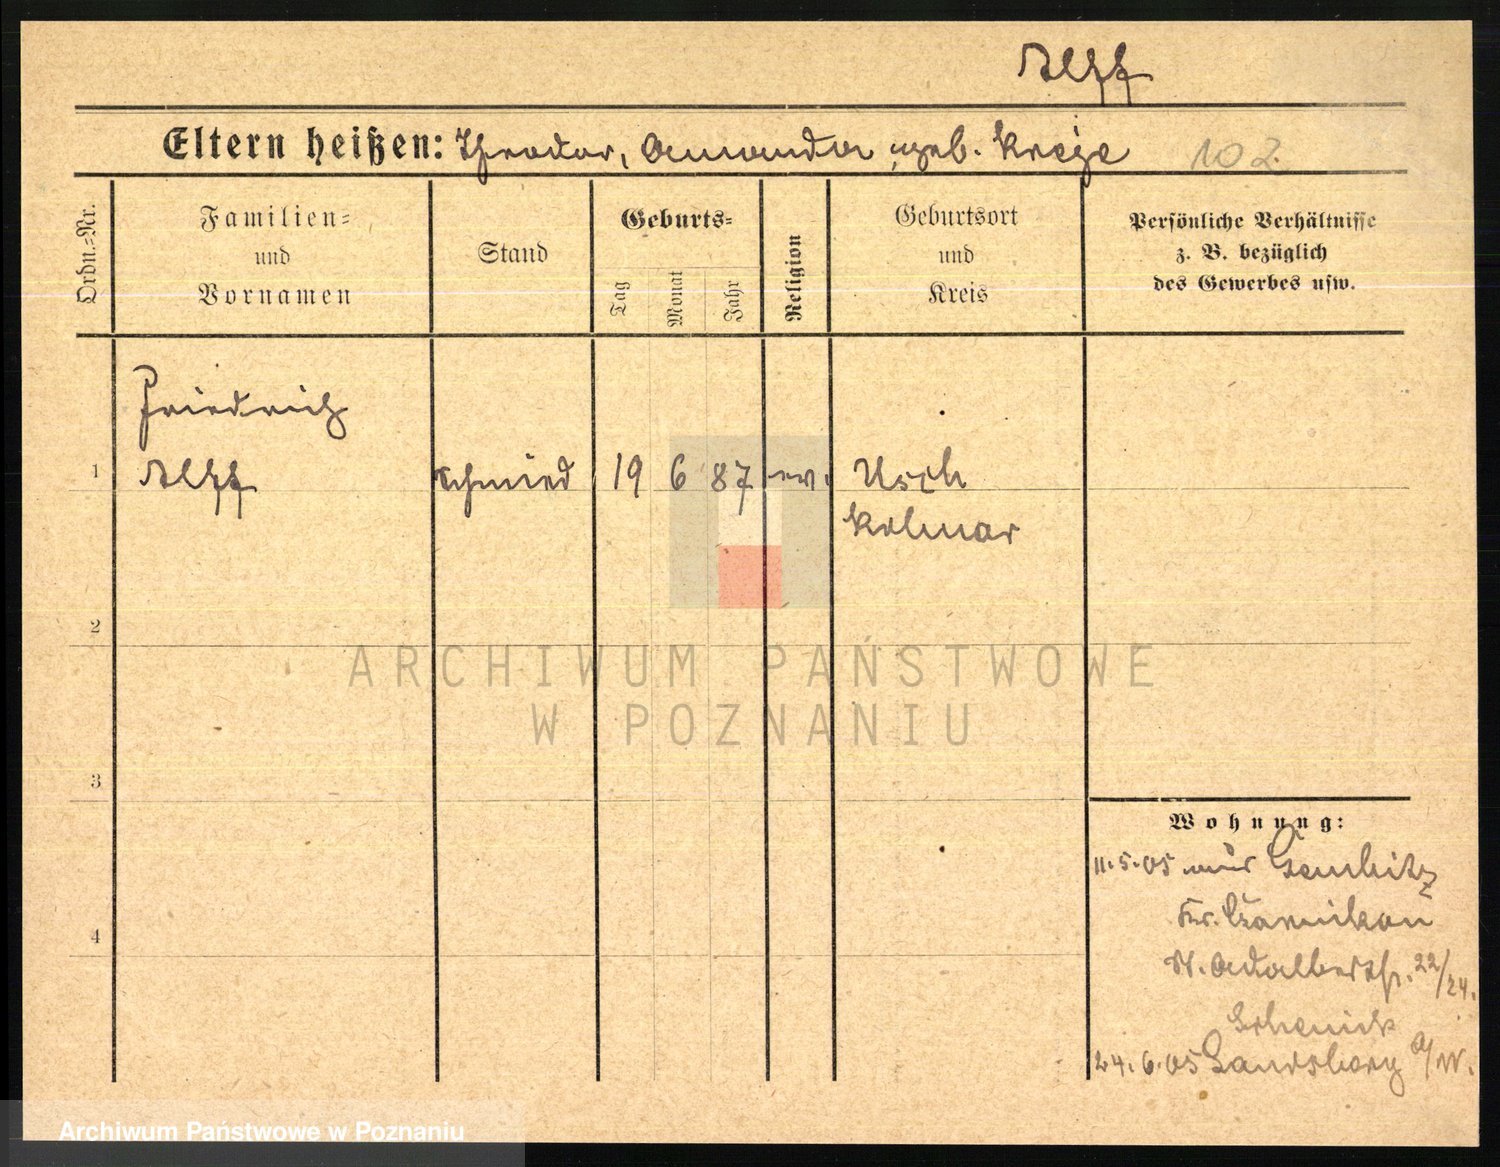 Alff
Eltern heißen: Theodor, Amanda geb. Kreje 102.
Ordn.=Nr.
Familien=
und
Vornamen
Stand
Geburts=
Tag
Monat
Jahr
Religion
Geburtsort
und
Kreis
Persönliche Verhältnisse
z. B. bezüglich
des Gewerbes usw.
Friedrich
1 Alff Schmied 19 6 87 ev. Usch
Kolmar
2
3
4
Wohnung:
11.5.05 aus Gembitz
Kr. Czarnikau
St. Adalbertstr. 22/24.
24.6.05 Landsberg a/W.
ARCHIWUM PAŃSTWOWE
W POZNANIU
Archiwum Państwowe w Poznaniu